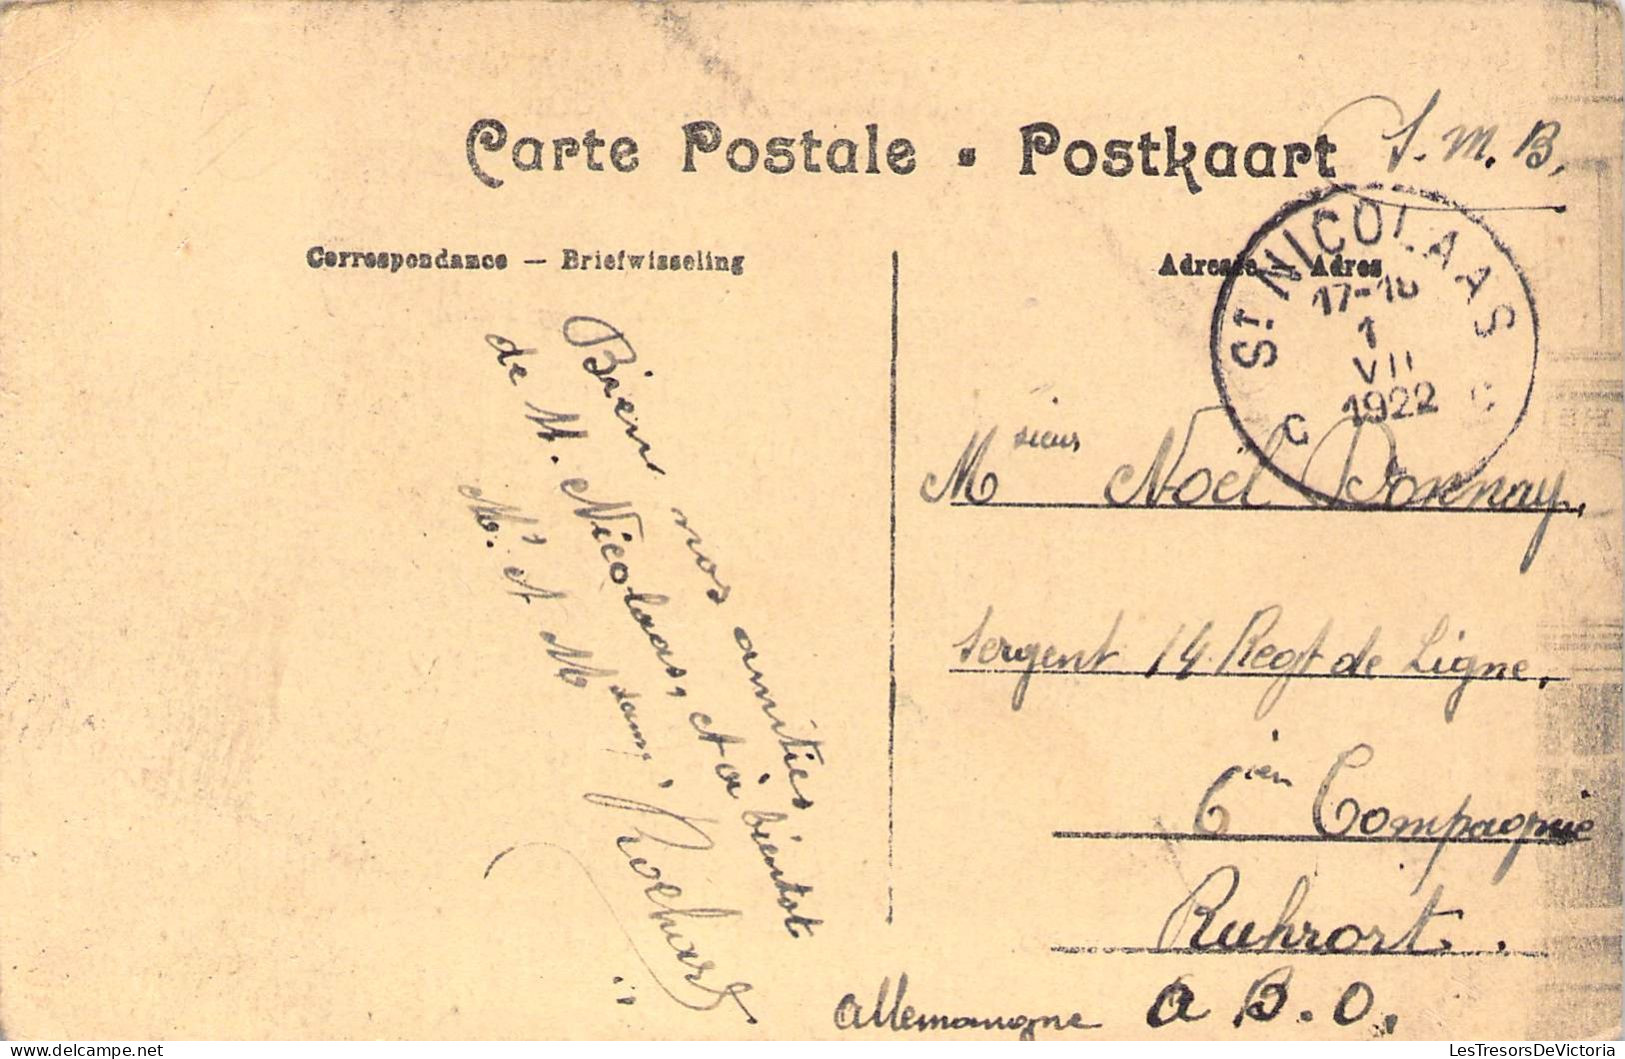 Carte Postale • Postkaart
S.M.B.
Correspondance — Briefwisseling
Adresse — Adres
St NICOLAAS
17-18
1
VII
1922
C C
Bien nos amitiés
de St. Nicolaas, et à bientôt
Mr. et Mdame
Msieur Noël Donnay,
Sergent 14 Regt de Ligne,
6ien Compagnie
Ruhrort.
Allemangne A B.O.
LesTresorsDeVictoria